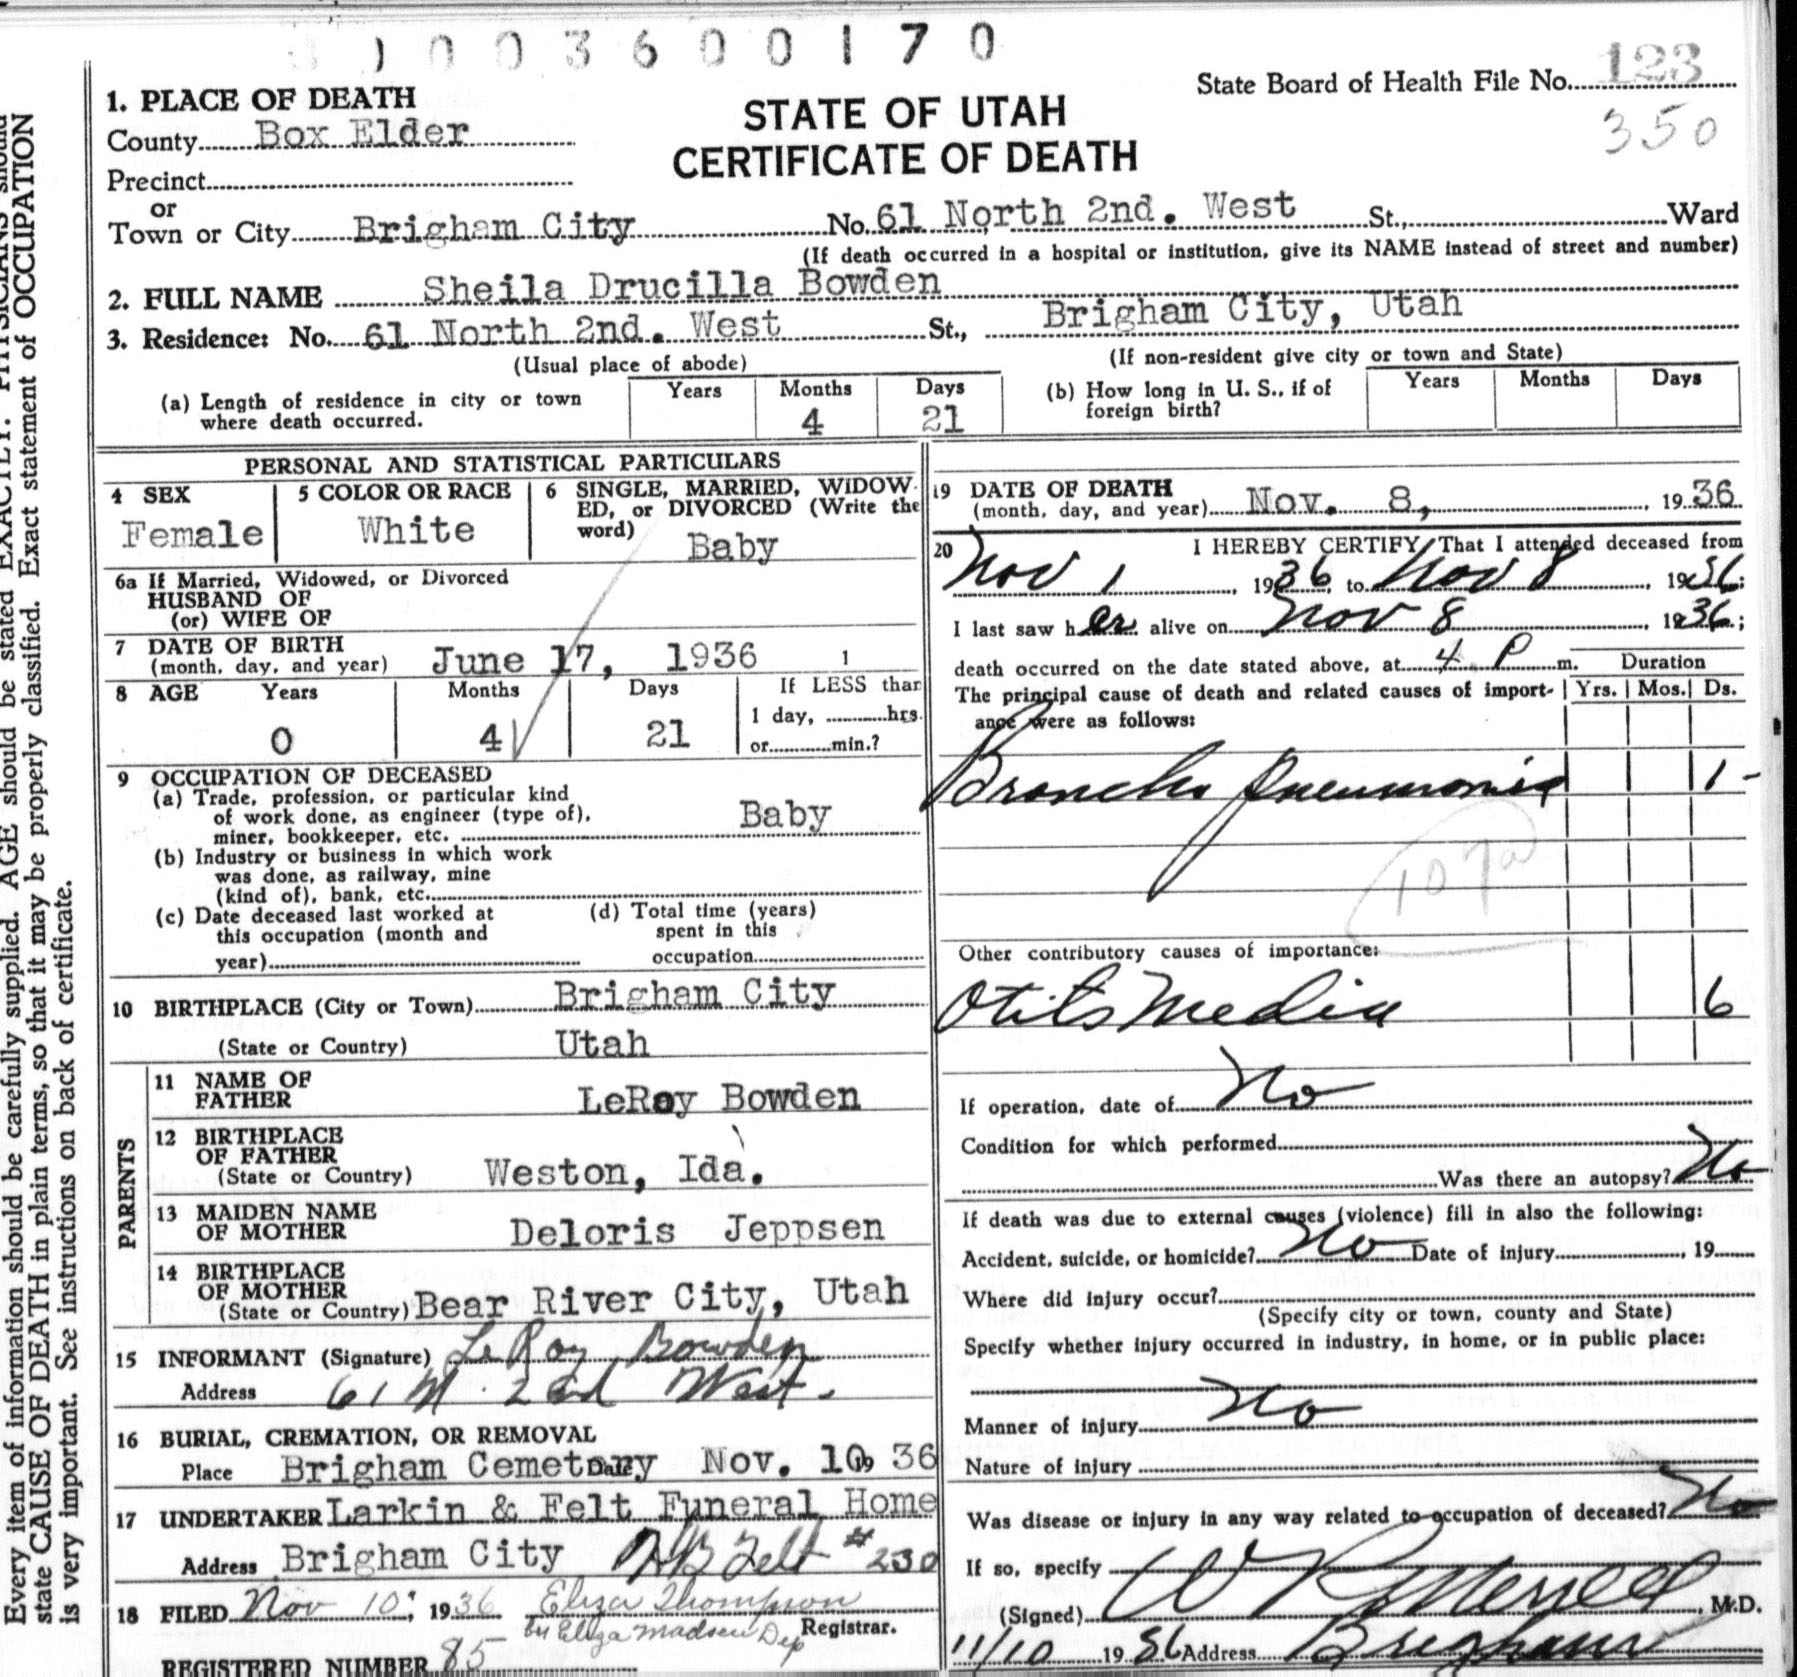 1003600170
State Board of Health File No. 123
350
STATE OF UTAH
CERTIFICATE OF DEATH
1. PLACE OF DEATH
County Box Elder
Precinct
or
Town or City Brigham City No. 61 North 2nd. West St., Ward
(If death occurred in a hospital or institution, give its NAME instead of street and number)
2. FULL NAME Sheila Drucilla Bowden
3. Residence: No. 61 North 2nd. West St., Brigham City, Utah
(Usual place of abode) (If non-resident give city or town and State)
(a) Length of residence in city or town where death occurred. Years Months 4 Days 21
(b) How long in U. S., if of foreign birth? Years Months Days
PERSONAL AND STATISTICAL PARTICULARS
4 SEX Female
5 COLOR OR RACE White
6 SINGLE, MARRIED, WIDOWED, or DIVORCED (Write the word) Baby
6a If Married, Widowed, or Divorced
HUSBAND OF
(or) WIFE OF
7 DATE OF BIRTH
(month, day, and year) June 17, 1936 1
8 AGE Years Months Days If LESS than
1 day, hrs.
0 4 21 or min.?
9 OCCUPATION OF DECEASED
(a) Trade, profession, or particular kind
of work done, as engineer (type of), Baby
miner, bookkeeper, etc.
(b) Industry or business in which work
was done, as railway, mine
(kind of), bank, etc.
(c) Date deceased last worked at
this occupation (month and
year)
(d) Total time (years)
spent in this
occupation
10 BIRTHPLACE (City or Town) Brigham City
(State or Country) Utah
PARENTS
11 NAME OF
FATHER LeRoy Bowden
12 BIRTHPLACE
OF FATHER
(State or Country) Weston, Ida.
13 MAIDEN NAME
OF MOTHER Deloris Jeppsen
14 BIRTHPLACE
OF MOTHER
(State or Country) Bear River City, Utah
15 INFORMANT (Signature) LeRoy Bowden
Address 61 N. 2nd West.
16 BURIAL, CREMATION, OR REMOVAL
Place Brigham Cemetery Date Nov. 10 19 36
17 UNDERTAKER Larkin & Felt Funeral Home
Address Brigham City Felt #230
18 FILED Nov 10, 1936 Eliza Thompson
by Eliza Madsen Dep Registrar.
REGISTERED NUMBER 85
19 DATE OF DEATH
(month, day, and year) Nov. 8, 1936
20 I HEREBY CERTIFY, That I attended deceased from
Nov 1, 1936, to Nov 8, 1936;
I last saw her alive on Nov 8, 1936;
death occurred on the date stated above, at 4 P m. Duration
The principal cause of death and related causes of importance were as follows: Yrs. Mos. Ds.
Broncho pneumonia 1-
107a
Other contributory causes of importance:
Otits Media 6
If operation, date of No
Condition for which performed
Was there an autopsy? No
If death was due to external causes (violence) fill in also the following:
Accident, suicide, or homicide? No Date of injury , 19
Where did injury occur?
(Specify city or town, county and State)
Specify whether injury occurred in industry, in home, or in public place:
Manner of injury No
Nature of injury
Was disease or injury in any way related to occupation of deceased? No
If so, specify
(Signed) W R Merrell, M.D.
11/10 1936 Address Brigham
Every item of information should be carefully supplied. AGE should be stated EXACTLY. PHYSICIANS should
state CAUSE OF DEATH in plain terms, so that it may be properly classified. Exact statement of OCCUPATION
is very important. See instructions on back of certificate.